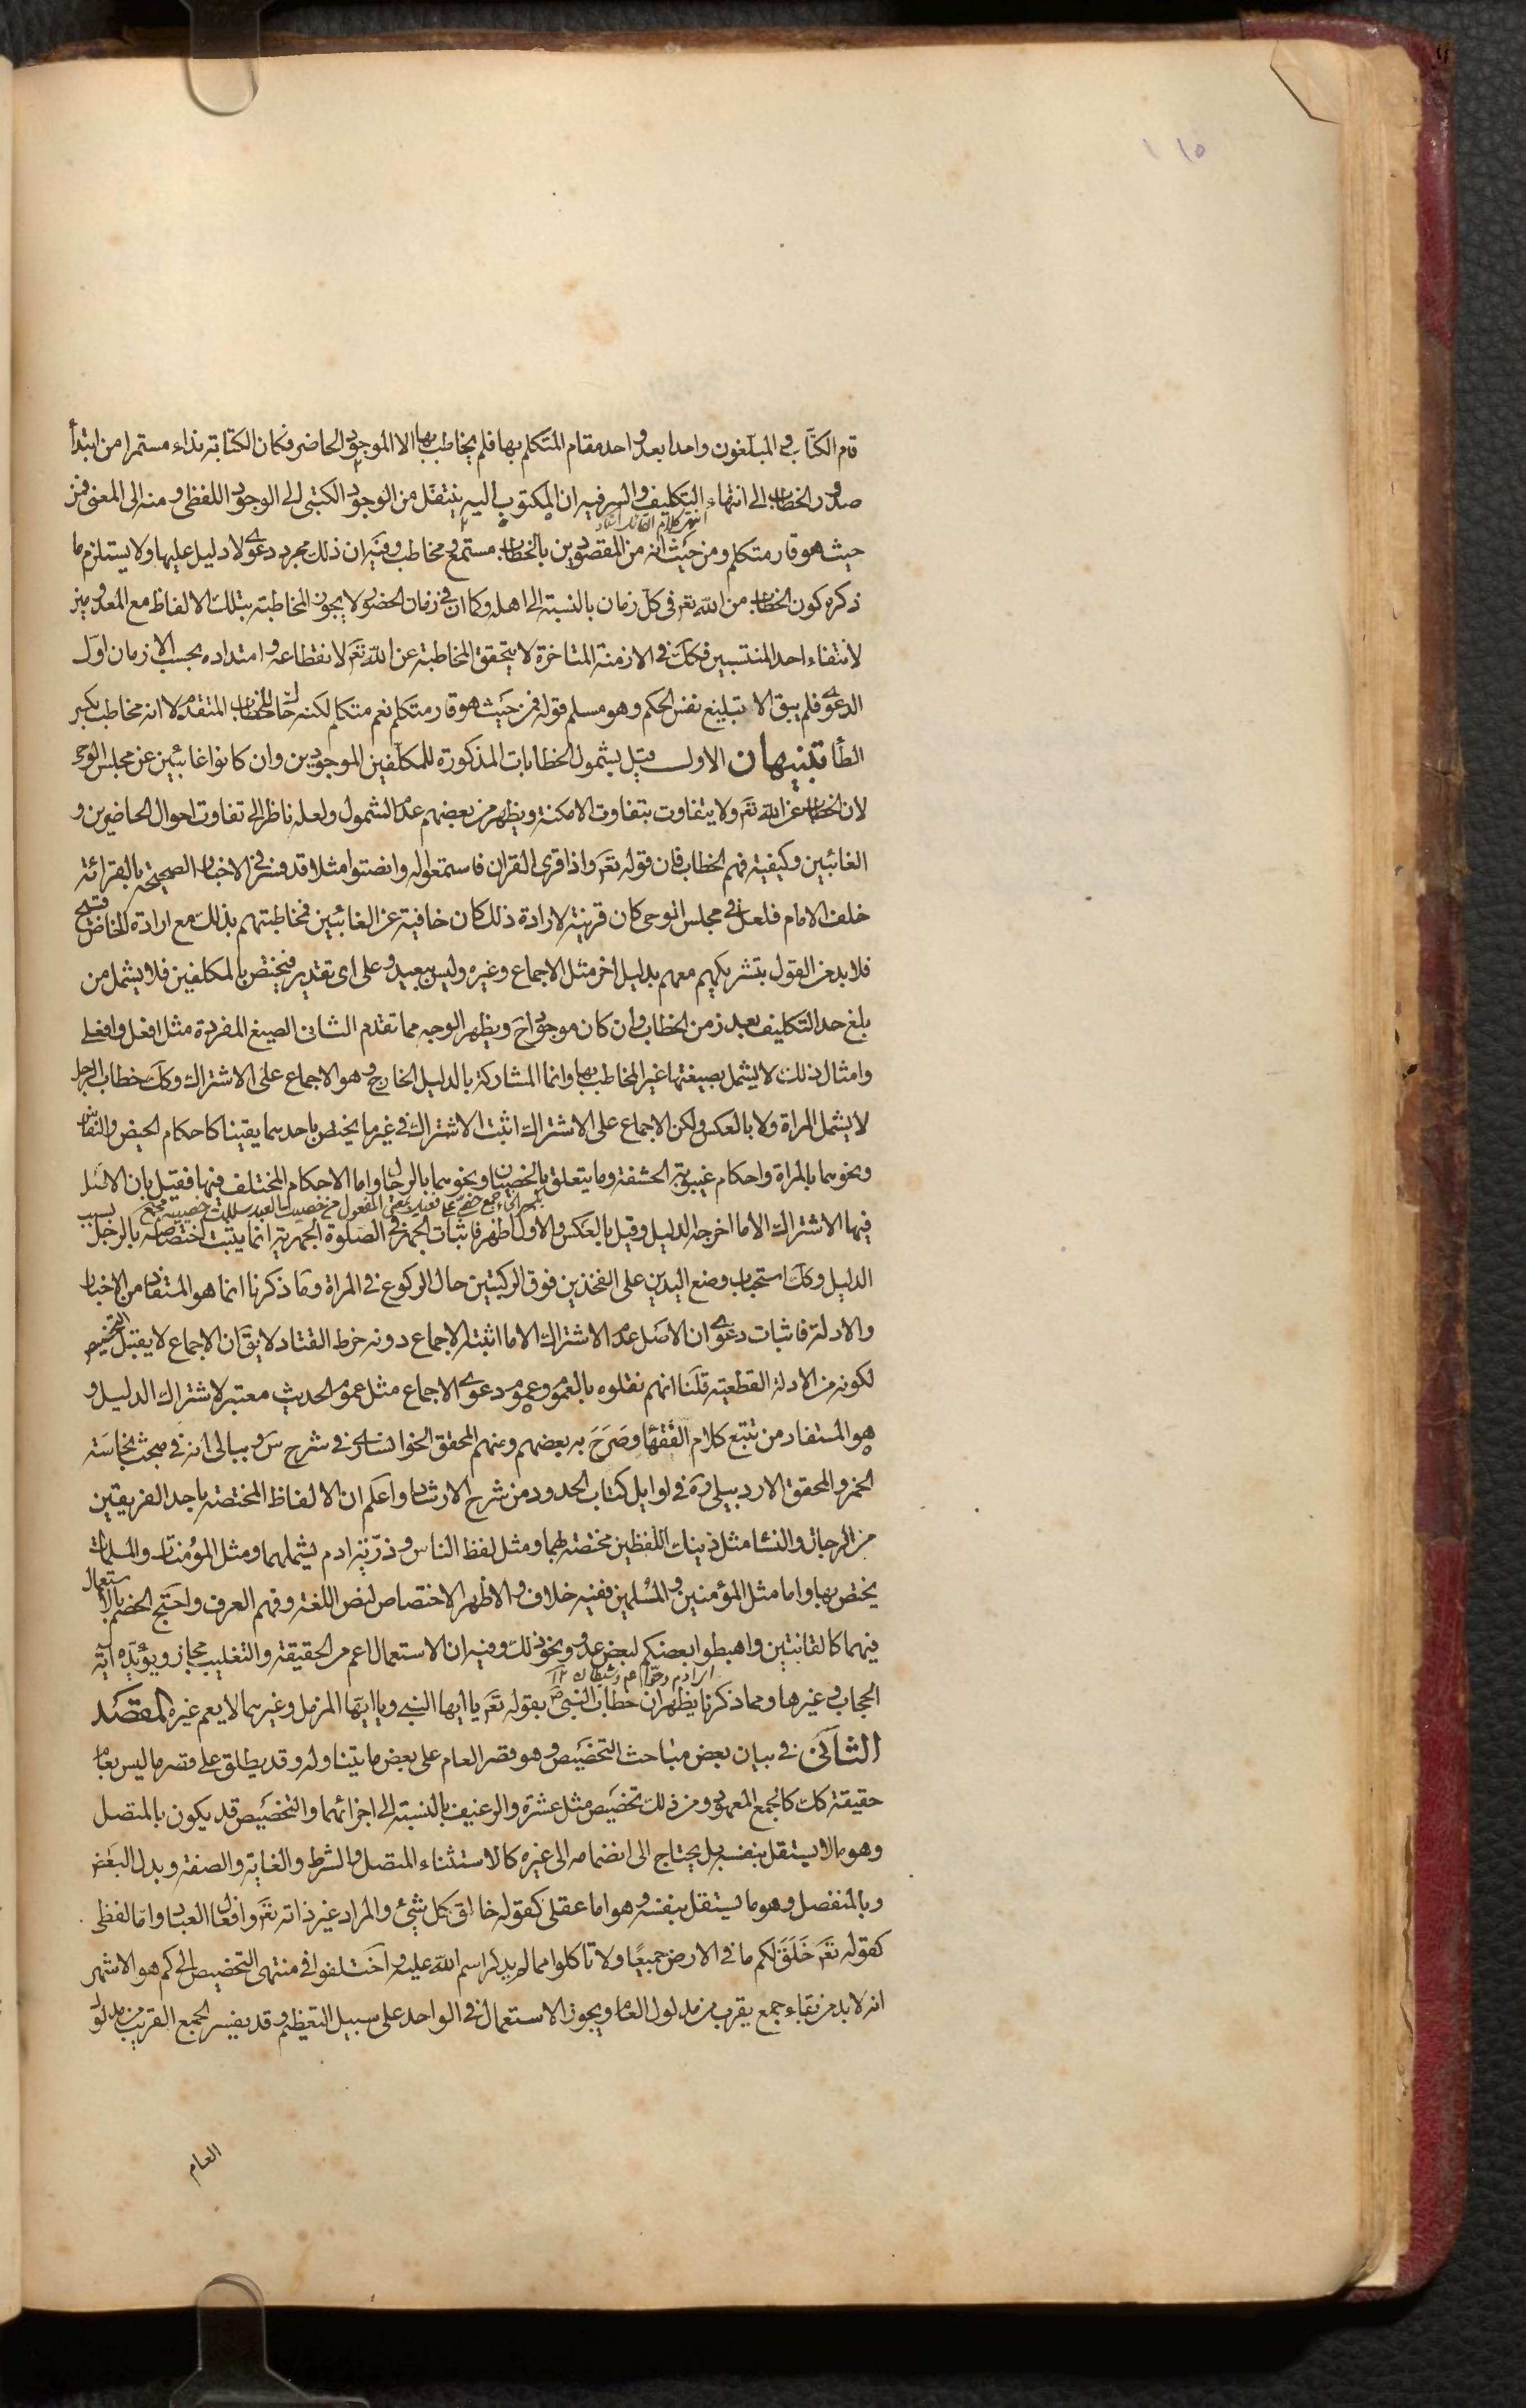 ١١٥
قام الكتّاب والمبلّغون واحدا بعد واحد مقام المتكلم بها فلم يخاطب بها الا الموجود الحاضر فكان الكتابة نداء مستمرا من ابتدأ
صدور الخطاب الى انتهاء التكليف والسر فيه ان المكتوب اليه ينتقل من الوجود الكتبى الى الوجود اللفظى ومنه الى المعنى فمن
انتهى كلام القائل
حيث هو قار متكلم ومن حيث انه من المقصودين بالخطاب مستمع ومخاطب وفيه ان ذلك مجرد دعوى لا دليل عليها ولا يستلزم ما
ذكره كون الخطاب من الله تعم فى كلّ زمان بالنسبة الى اهله وكما ان فى زمان الحضور لا يجوز المخاطبة بتلك الالفاظ مع المعدومين
لانتفاء احد المنتسبين فكك فى الازمنة المتاخرة لا يتحقق المخاطبة عن الله تعم لانقطاعه وامتداده بحسب الازمان اوّل
الدعوى فلم يبق الا تبليغ نفس الحكم وهو مسلم قوله فمن حيث هو قار متكلم نعم متكلم لكنه حاك للخطاب المتقدم لا انه مخاطب بكسر
الطا تنبيهان الاول قيل بشمول الخطابات المذكورة للمكلّفين الموجودين وان كانوا غائبين عن مجلس الوحى
لان الخطاب عن الله تعم ولا يتفاوت بتفاوت الامكنة ويظهر من بعضهم عدم الشمول ولعله ناظر الى تفاوت احوال الحاضرين و
الغائبين وكيفية فهم الخطاب فان قوله تعم واذا قرى القران فاستمعوا له وانصتوا مثلا قد فسر فى الاخبار الصحيحة بالقرائة
خلف الامام فلعل فى مجلس الوحى كان قرينة لارادة ذلك كان خافية عن الغائبين فخاطبتهم بذلك مع ارادة الخاص قبيح
فلا بد من القول بتشريكهم معهم بدليل اخر مثل الاجماع وغيره وليس ببعيد وعلى اى تقدير فيختص بالمكلفين فلا يشمل من
بلغ حد التكليف بعد زمن الخطاب وان كان موجودا ح ويظهر الوجه مما تقدم الثانى الصيغ المفردة مثل افعل وافعلى
وامثال ذلك لا يشمل بصيغتها غير المخاطب بها وانما المشاركة بالدليل الخارج وهو الاجماع على الاشتراك وكك خطاب الرجل
لا يشمل المراة ولا بالعكس ولكن الاجماع على الاشتراك اثبت الاشتراك فى غير ما يختص باحدهما يقينا كاحكام الحيض والنفاس
ونحوهما بالمراة واحكام غيبوبة الحشفة وما يتعلق بالخصيين ونحوهما بالرجال واما الاحكام المختلف فيها فقيل بان الاصل
فيها الاشتراك الا ما اخرجه الدليل وقيل بالعكس والاول اظهر فاثبات الجهر فى الصلوة الجهرية انما يثبت اختصاصه بالرجل بسبب
الدليل وكك استحباب وضع اليدين على الفخذين فوق الركبتين حال الركوع فى المراة وما ذكرنا انما هو المستفاد من الاخبار
والادلة فاثبات دعوى ان الاصل عدم الاشتراك الا ما اثبته الاجماع دونه خرط القتاد لا يق ان الاجماع لا يقبل التخصيص
لكونه من الادلة القطعية قلنا انهم نقلوه بالعموم وعموم دعوى الاجماع مثل عموم الحديث معتبر لاشتراك الدليل و
هو المستفاد من تتبع كلام الفقهاء وصَرَح به بعضهم ومنهم المحقق الخوانسارى فى شرح س وببالى انه فى مبحث نجاسة
الخمر والمحقق الاردبيلى ره فى اوايل كتاب الحدود من شرح الارشاد واعلم ان الالفاظ المختصة باحد الفريقين
من الرجال والنساء مثل ذينك اللفظين مختصة بهما ومثل لفظ الناس وذرّية ادم يشملهما ومثل المؤمنات والمسلمات
يختص بها واما مثل المؤمنين والمسلمين ففيه خلاف والاظهر الاختصاص لنص اللغة وفهم العرف واحتج الخصم بالاستعمال
فيهما كالقانتين واهبطوا بعضكم لبعض عدو ونحو ذلك وفيه ان الاستعمال اعم من الحقيقة والتغليب مجاز ويؤيّده اية
اى ادم وحوّا وشيطان ١٢
الحجاب وغيرها ومما ذكرنا يظهر ان خطاب النبى ص بقوله تعم يا ايها النبى ويا ايّها المزمل وغيرهما لا يعم غيره المقصد
الثانى فى بيان بعض مباحث التخصيص وهو قصر العام على بعض ما يتناوله وقد يطلق على قصر ما ليس بعام
حقيقة كك كالجمع المعهود ومن ذلك تخصيص مثل عشرة والرغيف بالنسبة الى اجزائهما والتخصيص قد يكون بالمتصل
وهو ما لا يستقل بنفسه بل يحتاج الى انضمامه الى غيره كالاستثناء المتصل والشرط والغاية والصفة وبدل البعض
وبالمنفصل وهو ما يستقل بنفسه وهو اما عقلى كقوله خالق كل شئ والمراد غير ذاته تعم وافعال العباد واما لفظى
كقوله تعم خَلَقَ لكم ما فى الارض جميعًا ولا تاكلوا مما لم يذكر اسم الله عليه واختلفوا فى منتهى التخصيص الى كم هو الاشهر
انه لا بد من بقاء جمع يقرب من مدلول العام ويجوز الاستعمال فى الواحد على سبيل التعظيم وقد يفسر الجمع القريب من مدلول
العام